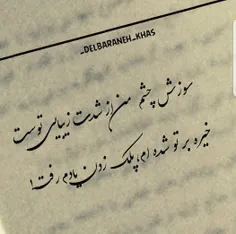 _DELBARANEH_KHAS
سوزش چشم من از شدت زیبایی توست
خیره بر تو شده ام، پلک زدن یادم رفت!